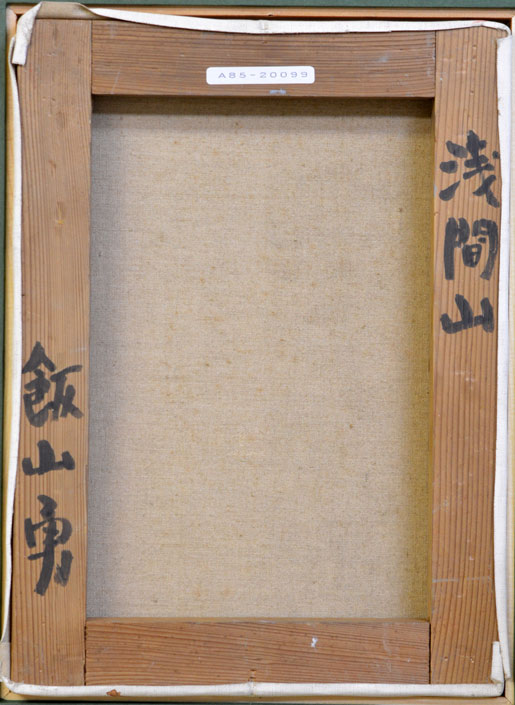 A85-20099
浅間山
飯山勇